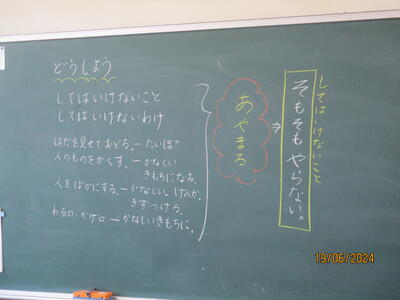 どうしよう
してはいけないこと
してはいけないわけ
はだを見せておどろ。ーたいほ?
人のものをかくす。ーかなしい
きもちになる。
人をばかにする。ーかなしい。けんか。
きずつける。
わる口・かげ口ーかなしいきもちに。
あやまる
してはいけないこと
そもそもやらない。
19/06/2024